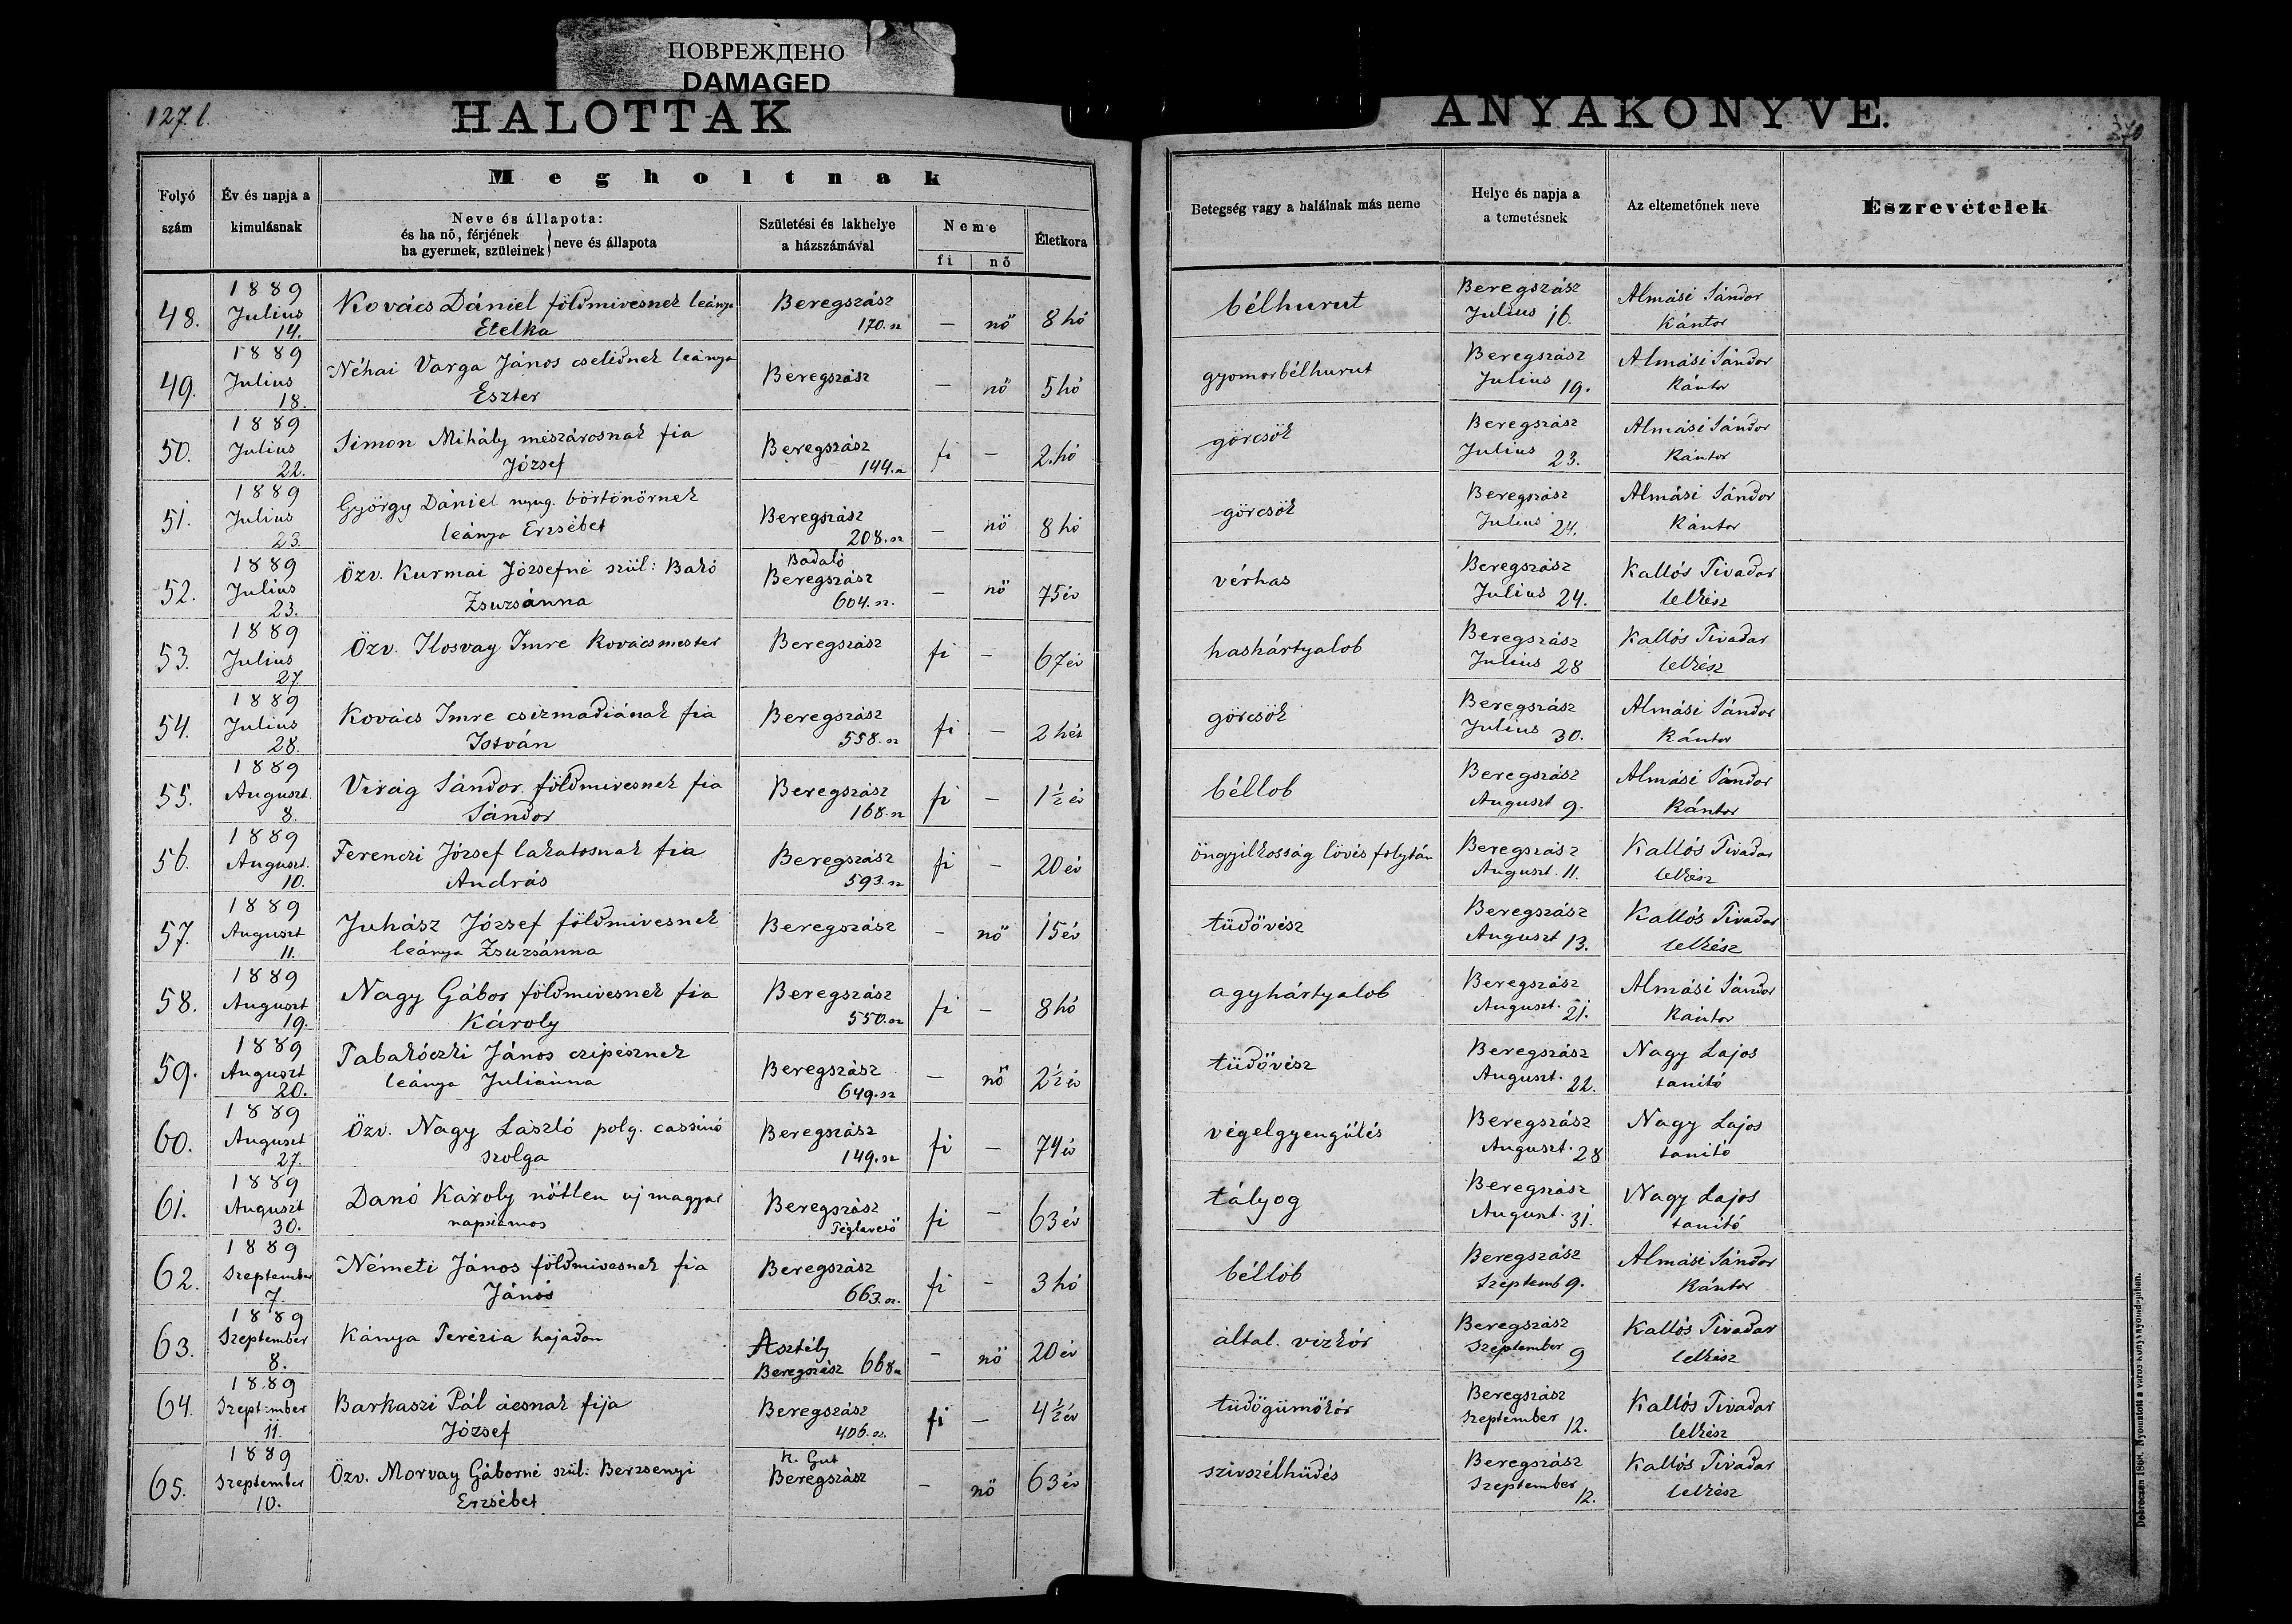 ПОВРЕЖДЕНО
DAMAGED
127 l.
HALOTTAK
Folyó szám
Év és napja a kimulásnak
Megholtnak
Neve és állapota:
és ha nő, férjének
ha gyermek, szüleinek } neve és állapota
Születési és lakhelye
a házszámával
Neme
fi nő
Életkora
48. 1889 Julius 14. Kovács Dániel földmivesnek leánya Etelka Beregszász 170. sz – nő 8 hó
49. 1889 Julius 18. Néhai Varga János cselédnek leánya Eszter Beregszász – nő 5 hó
50. 1889 Julius 22. Simon Mihály mészárosnak fia József Beregszász 144. sz fi – 2. hó
51. 1889 Julius 23. György Dániel nyug. börtönőrnek leánya Erzsébet Beregszász 208. sz – nő 8 hó
52. 1889 Julius 23. Özv. Kurmai Józsefné szül: Bakó Zsuzsánna Badaló Beregszász 604. sz. – nő 75 év
53. 1889 Julius 27. Özv. Ilosvay Imre Kovácsmester Beregszász fi – 67 év
54. 1889 Julius 28. Kovács Imre csizmadiának fia István Beregszász 558. sz fi – 2 hét
55. 1889 Auguszt. 8. Virág Sándor földmivesnek fia Sándor Beregszász 168. sz fi – 1 ½ év
56. 1889 Auguszt. 10. Ferenczi József lakatosnak fia András Beregszász 593. sz fi – 20 év
57. 1889 Auguszt 11. Juhász József földmivesnek leánya Zsuzsánna Beregszász – nő 15 év
58. 1889 Auguszt 19. Nagy Gábor földmivesnek fia Károly Beregszász 550. sz fi – 8 hó
59. 1889 Auguszt 20. Tabakóczki János czipésznek leánya Juliánna Beregszász 649. sz – nő 2 ½ év
60. 1889 Auguszt 27. Özv. Nagy László polg. cassinó szolga Beregszász 149. sz fi – 74 év
61. 1889 Auguszt 30. Danó Károly nőtlen uj magyar napszámos Beregszász Téglavető fi – 63 év
62. 1889 Szeptember 7. Németi János földmivesnek fia János Beregszász 663. sz. fi – 3 hó
63. 1889 Szeptember 8. Kánya Terézia hajadon Asztély Beregszász 668 sz – nő 20 év
64. 1889 Szeptember 11. Barkaszi Pál ácsnak fija József Beregszász 406. sz. fi – 4 ½ év
65. 1889 Szeptember 10. Özv. Morvay Gáborné szül: Berzsenyi Erzsébet K. Gut Beregszász – nő 63 év
ANYAKÖNYVE.
Betegség vagy a halálnak más neme
Helye és napja a
a temetésnek
Az eltemetőnek neve
Észrevételek
bélhurut Beregszász Julius 16. Almási Sándor Kántor
gyomorbélhurut Beregszász Julius 19. Almási Sándor Kántor
görcsök Beregszász Julius 23. Almási Sándor Kántor
görcsök Beregszász Julius 24. Almási Sándor Kántor
vérhas Beregszász Julius 24. Kallós Tivadar lelkész
hashártyalob Beregszász Julius 28 Kallós Tivadar lelkész
görcsök Beregszász Julius 30. Almási Sándor Kántor
béllob Beregszász Auguszt 9. Almási Sándor Kántor
öngyilkosság lövés folytán Beregszász Auguszt. 11. Kallós Tivadar lelkész
tüdővész Beregszász Auguszt 13. Kallós Tivadar lelkész
agyhártyalob Beregszász Auguszt. 21. Almási Sándor Kántor
tüdővész Beregszász Auguszt. 22. Nagy Lajos tanító
végelgyengülés Beregszász Auguszt. 28 Nagy Lajos tanító
tályog Beregszász Auguszt. 31. Nagy Lajos tanító
béllob Beregszász Szeptemb 9. Almási Sándor Kántor
által. vizkór Beregszász Szeptember 9 Kallós Tivadar lelkész
tüdőgümőkór Beregszász Szeptember 12. Kallós Tivadar lelkész
szivszélhüdés Beregszász Szeptember 12. Kallós Tivadar lelkész
Debreczen 1868. Nyomatott a város könyvnyomdájában.